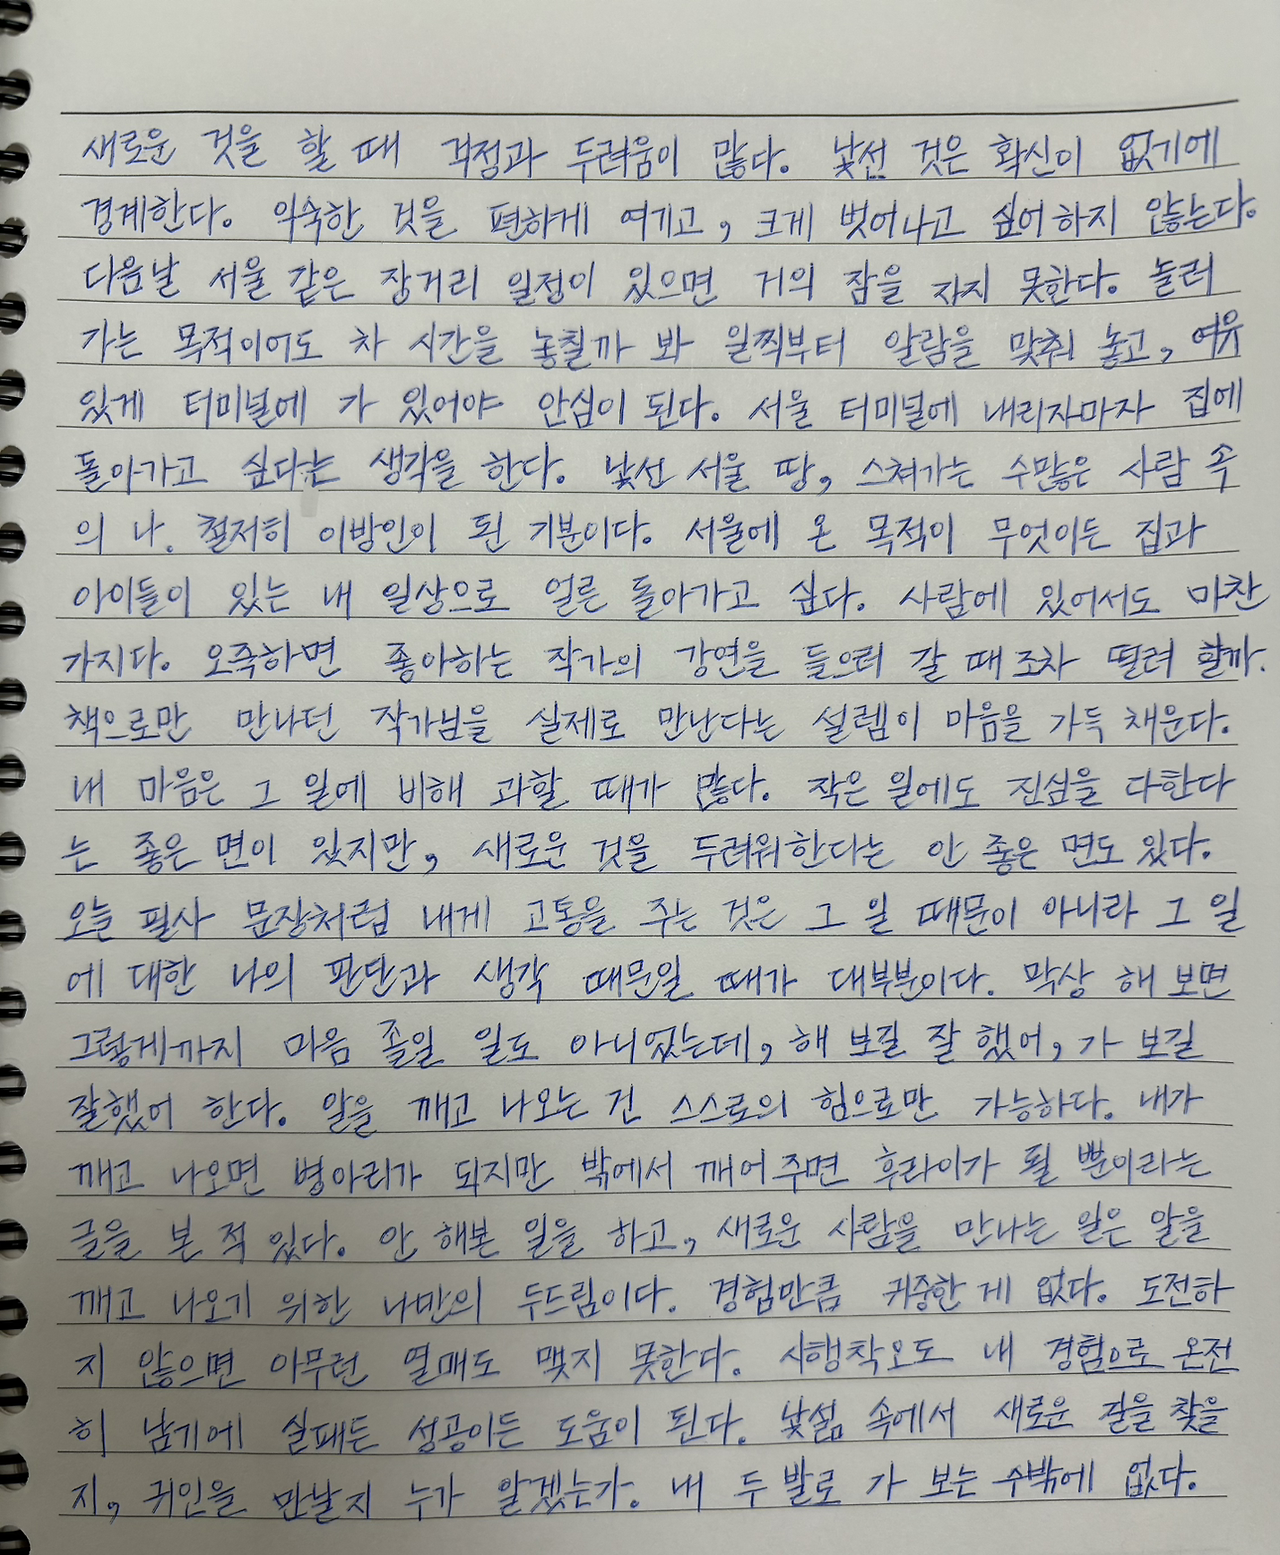 새로운 것을 할 때 걱정과 두려움이 많다. 낯선 것은 확신이 없기에
경계한다. 익숙한 것을 편하게 여기고, 크게 벗어나고 싶어하지 않는다.
다음날 서울 같은 장거리 일정이 있으면 거의 잠을 자지 못한다. 놀러
가는 목적이어도 차 시간을 놓칠까 봐 일찍부터 알람을 맞춰 놓고, 여유
있게 터미널에 가 있어야 안심이 된다. 서울 터미널에 내리자마자 집에
돌아가고 싶다는 생각을 한다. 낯선 서울 땅, 스쳐가는 수많은 사람 속
의 나. 철저히 이방인이 된 기분이다. 서울에 온 목적이 무엇이든 집과
아이들이 있는 내 일상으로 얼른 돌아가고 싶다. 사람에 있어서도 마찬
가지다. 오죽하면 좋아하는 작가의 강연을 들으러 갈 때조차 떨려 할까.
책으로만 만나던 작가님을 실제로 만난다는 설렘이 마음을 가득 채운다.
내 마음은 그 일에 비해 과할 때가 많다. 작은 일에도 진심을 다한다
는 좋은 면이 있지만, 새로운 것을 두려워한다는 안 좋은 면도 있다.
오늘 필사 문장처럼 내게 고통을 주는 것은 그 일 때문이 아니라 그 일
에 대한 나의 판단과 생각 때문일 때가 대부분이다. 막상 해 보면
그렇게까지 마음 졸일 일도 아니었는데, 해 보길 잘 했어, 가 보길
잘했어 한다. 알을 깨고 나오는 건 스스로의 힘으로만 가능하다. 내가
깨고 나오면 병아리가 되지만 밖에서 깨어주면 후라이가 될 뿐이라는
글을 본 적 있다. 안 해본 일을 하고, 새로운 사람을 만나는 일은 알을
깨고 나오기 위한 나만의 두드림이다. 경험만큼 귀중한 게 없다. 도전하
지 않으면 아무런 열매도 맺지 못한다. 시행착오도 내 경험으로 온전
히 남기에 실패든 성공이든 도움이 된다. 낯섦 속에서 새로운 길을 찾을
지, 귀인을 만날지 누가 알겠는가. 내 두 발로 가 보는 수밖에 없다.